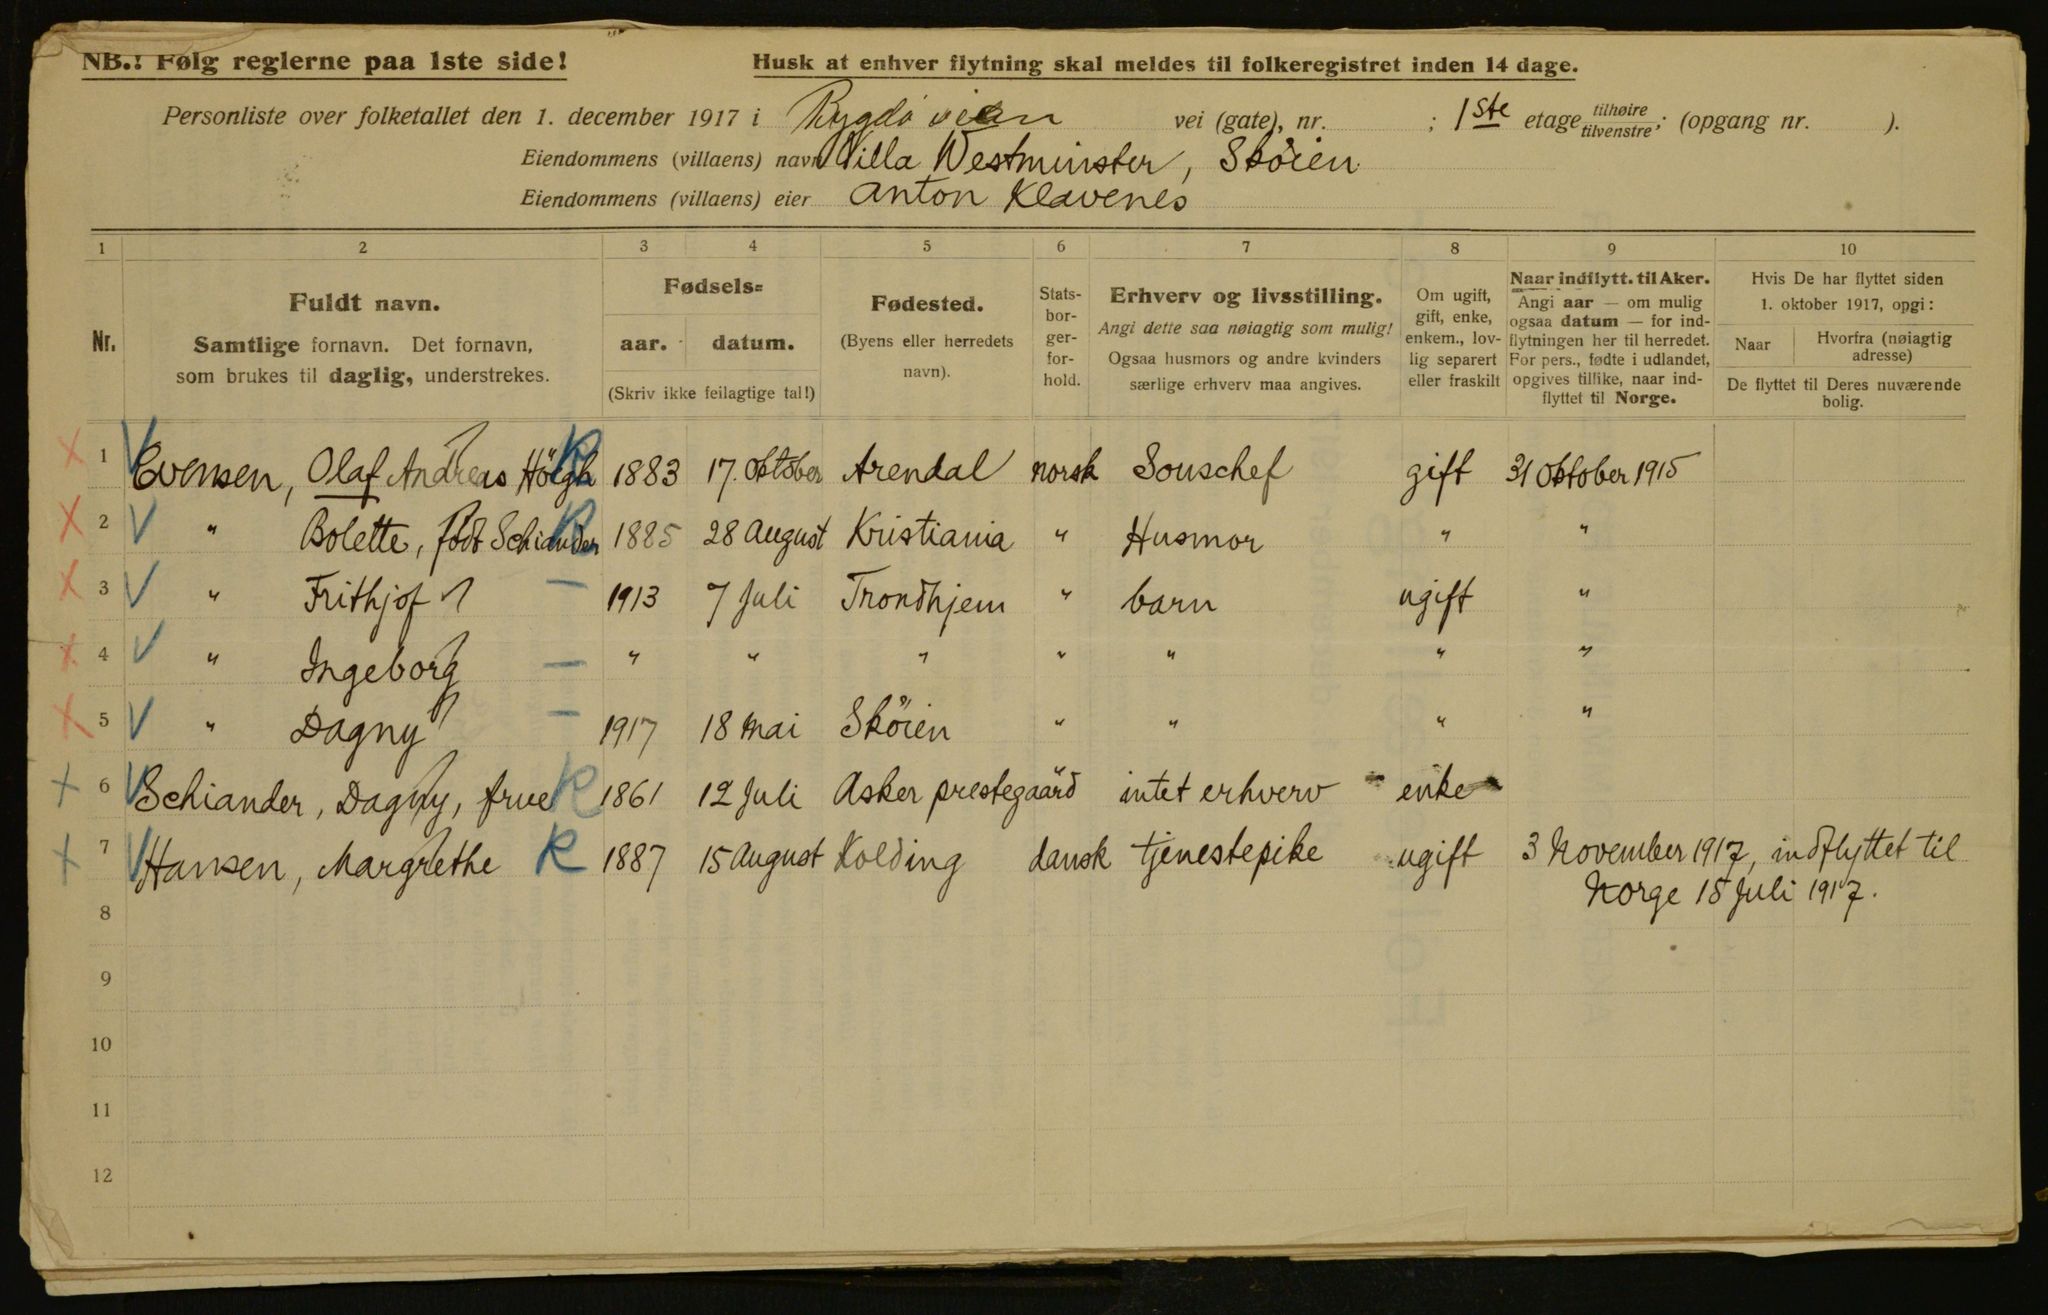 NB.! Følg reglerne paa 1ste side!
Husk at enhver flytning skal meldes til folkeregistret inden 14 dage.
Personliste over folketallet den 1. december 1917 i Bygdø veien vei (gate), nr. ; 1ste etage tilhøire tilvenstre; (opgang nr. ).
Eiendommens (villaens) navn Villa Westminster, Sköien
Eiendommens (villaens) eier Anton Klavenes
1 2 3 4 5 6 7 8 9 10
Nr.
Fuldt navn.
Samtlige fornavn. Det fornavn,
som brukes til daglig, understrekes.
Fødsels=
aar. datum.
(Skriv ikke feilagtige tal!)
Fødested.
(Byens eller herredets
navn).
Stats-
bor-
ger-
for-
hold.
Erhverv og livsstilling.
Angi dette saa nøiagtig som mulig!
Ogsaa husmors og andre kvinders
særlige erhverv maa angives.
Om ugift,
gift, enke,
enkem., lov-
lig separert
eller fraskilt
Naar indflytt. til Aker.
Angi aar — om mulig
ogsaa datum — for ind-
flytningen her til herredet.
For pers., fødte i udlandet,
opgives tillike, naar ind-
flyttet til Norge.
Hvis De har flyttet siden
1. oktober 1917, opgi:
Naar Hvorfra (nøiagtig
adresse)
De flyttet til Deres nuværende
bolig.
1 Evensen, Olaf Andreas Höegh 1883 17. Oktober Arendal norsk Souschef gift 31 Oktober 1915
2 " Bolette, født Schiander 1885 28 August Kristiania " Husmor " "
3 " Frithjof 1913 7 Juli Trondhjem " barn ugift "
4 " Ingeborg " " " " " " "
5 " Dagny 1917 18 Mai Sköien " " " "
6 Schiander, Dagny, frue 1861 12 Juli Asker prestegaard intet erhverv enke
7 Hansen, Margrethe 1887 15 August Kolding dansk tjenestepike ugift 3 November 1917, indflyttet til
Norge 15 Juli 1917.
8
9
10
11
12